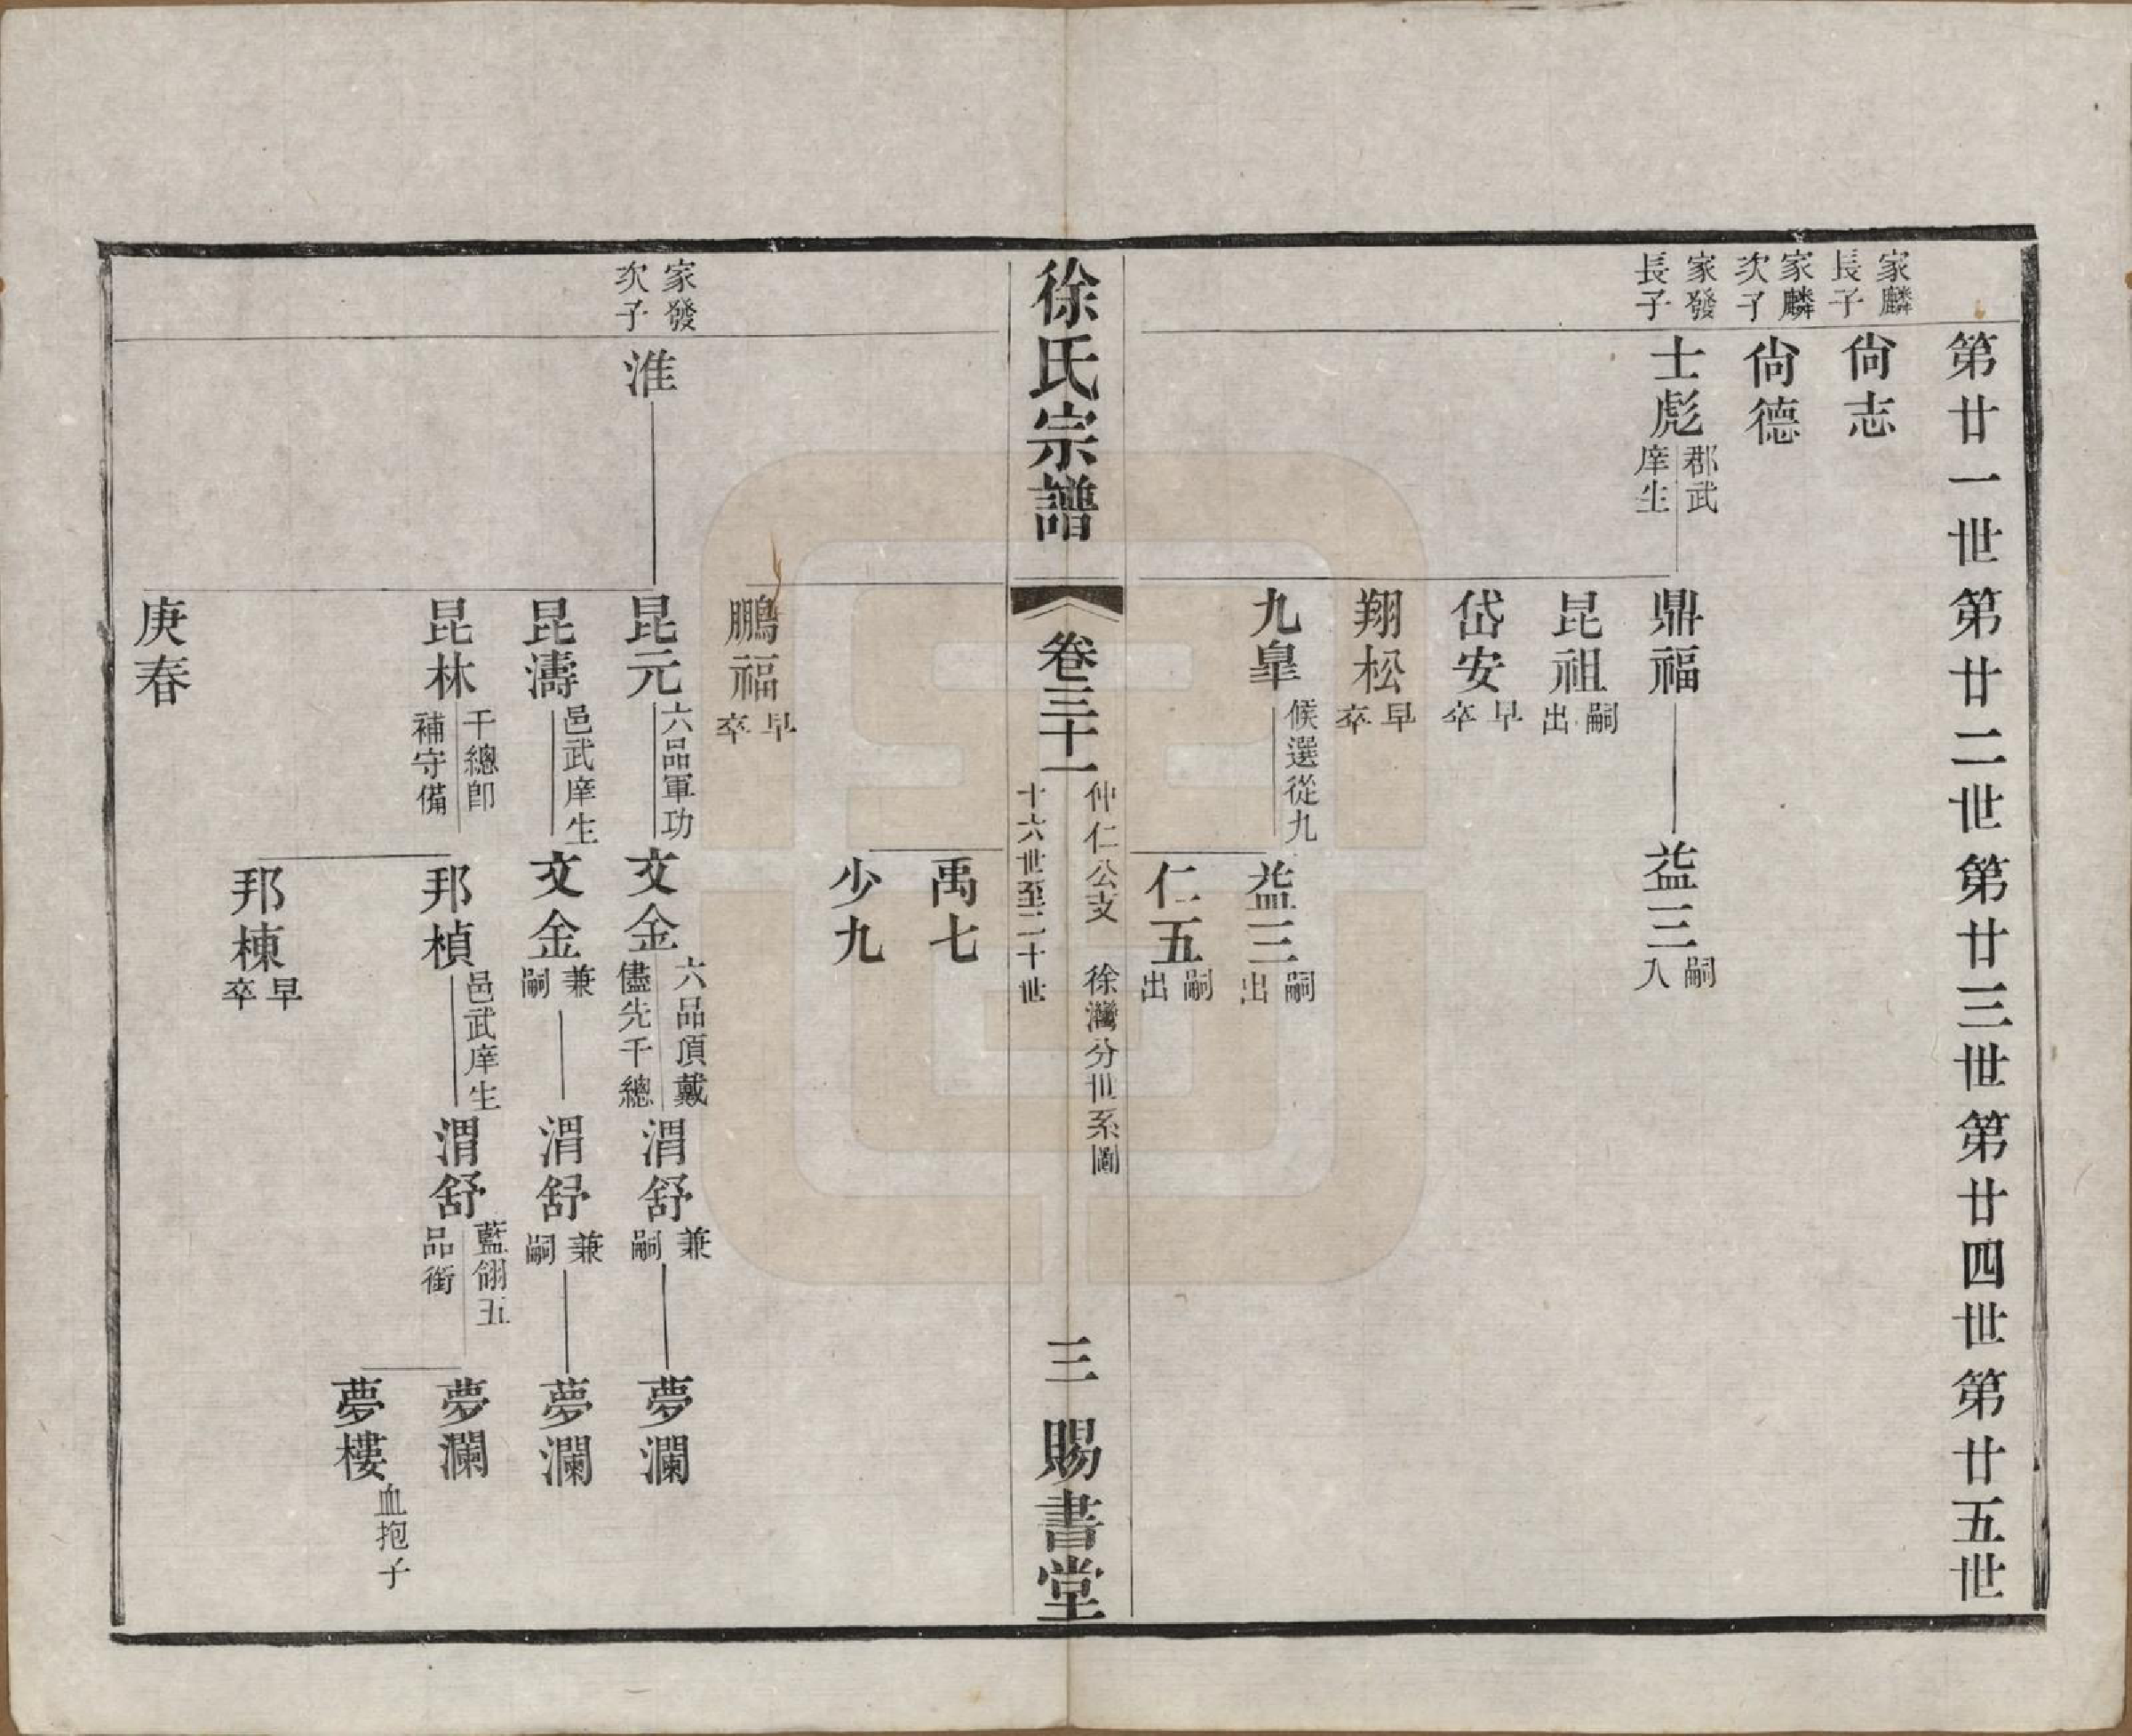 第廿一世
第廿二世
第廿三世
第廿四世
第廿五世
家麟長子
尙志
家麟次子
尙德
家發長子
士彪
郡武庠生
鼎福
益三
嗣入
昆祖
嗣出
岱安
早卒
翔松
早卒
九臯
候選從九
益三
嗣出
仁五
嗣出
徐氏宗譜
卷三十一
仲仁公支 徐灣分世系圖
十六世至二十世
三
賜書堂
禹七
少九
鵬福
早卒
家發次子
淮
昆元
六品軍功
文金
六品頂戴
儘先千總
渭舒
兼嗣
夢瀾
昆濤
邑武庠生
文金
兼嗣
渭舒
兼嗣
夢瀾
昆林
千總卽
補守備
邦楨
邑武庠生
渭舒
藍翎五
品銜
夢瀾
夢樓
血抱子
邦棟
早卒
庚春